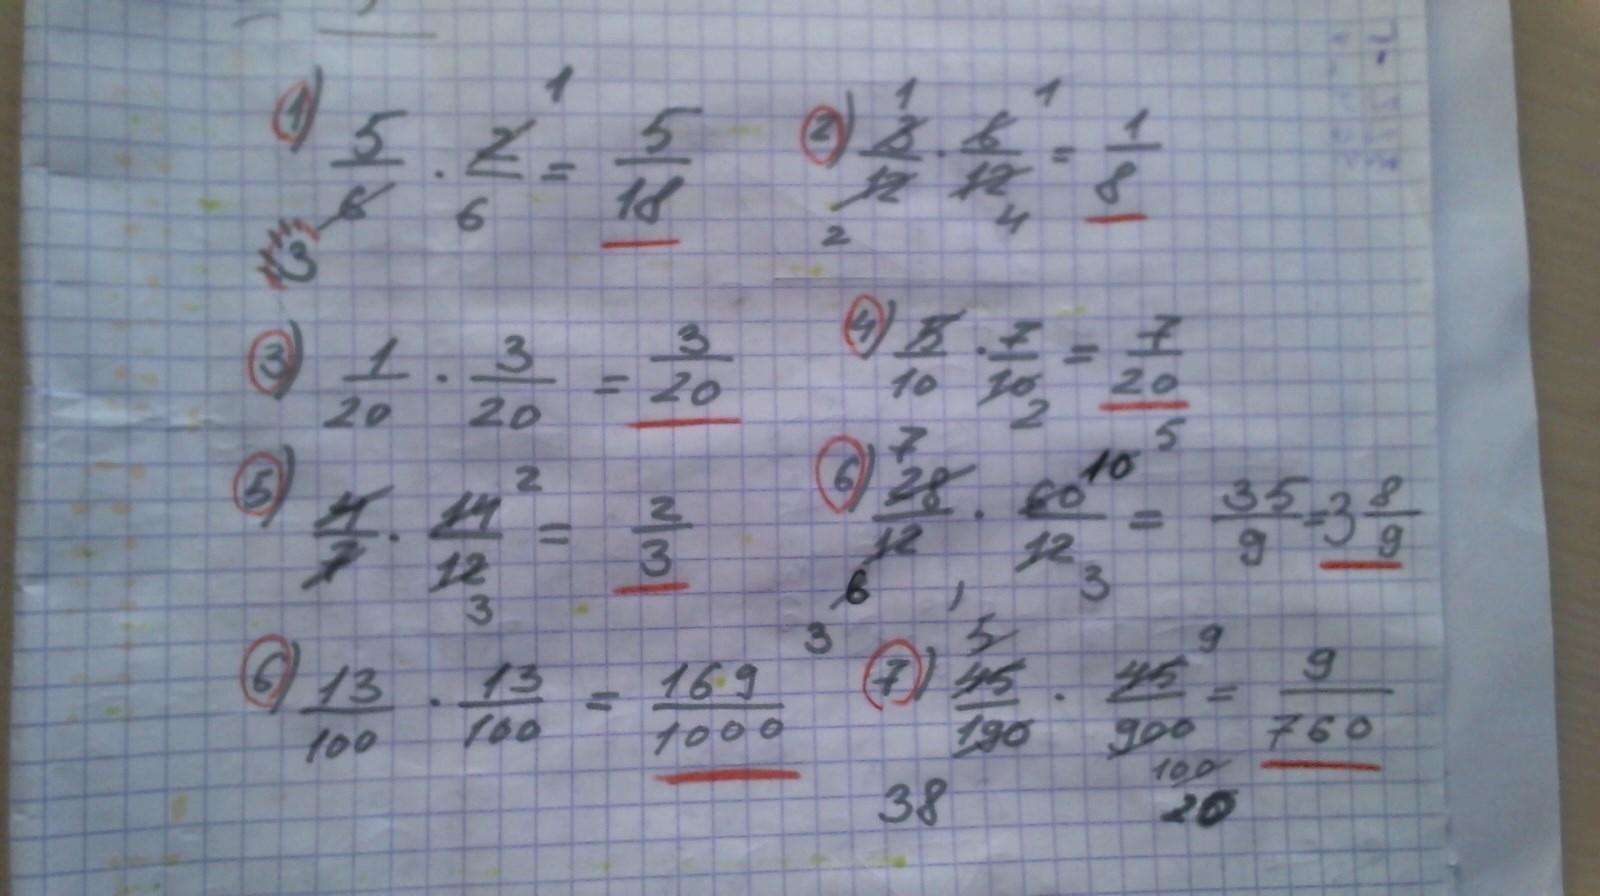 1) 5/6 · 2/6 = 5/18
1
3
2) 3/12 · 6/12 = 1/8
1 1
2 4
3) 1/20 · 3/20 = 3/20
4) 5/10 · 7/10 = 7/20
2
5) 4/7 · 14/12 = 2/3
2
3
6) 28/12 · 60/12 = 35/9 = 3 8/9
7 10 5
6 3
3
6) 13/100 · 13/100 = 169/1000
7) 45/190 · 45/900 = 9/760
5 9
38 100
20